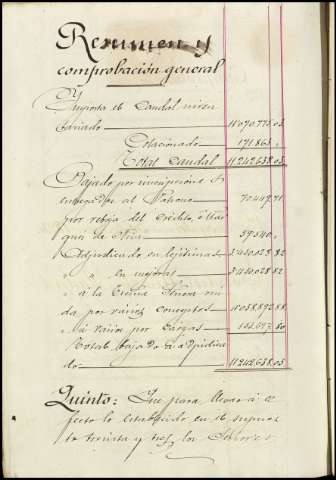 Resumen y
comprobación general
Importa el Caudal inven
tariado 11.070.775.03
Relacionado 171.863 "
Total Caudal 11.242.638.03
Bajado por
entregados al 70.449.71
por rebaja del Crédito
59.540 "
Adjudicado en legítimas 3.450.028.82
" " en mejoras 3.450.028.82
" á la Excma Señora viu
da por varios conceptos
" á varios por Cargas
Total bajado ó adjudica
do 11.242.638.03
Quinto: Que para llevar á e
fecto lo establecido en el supues
to treinta y tres, los Señores